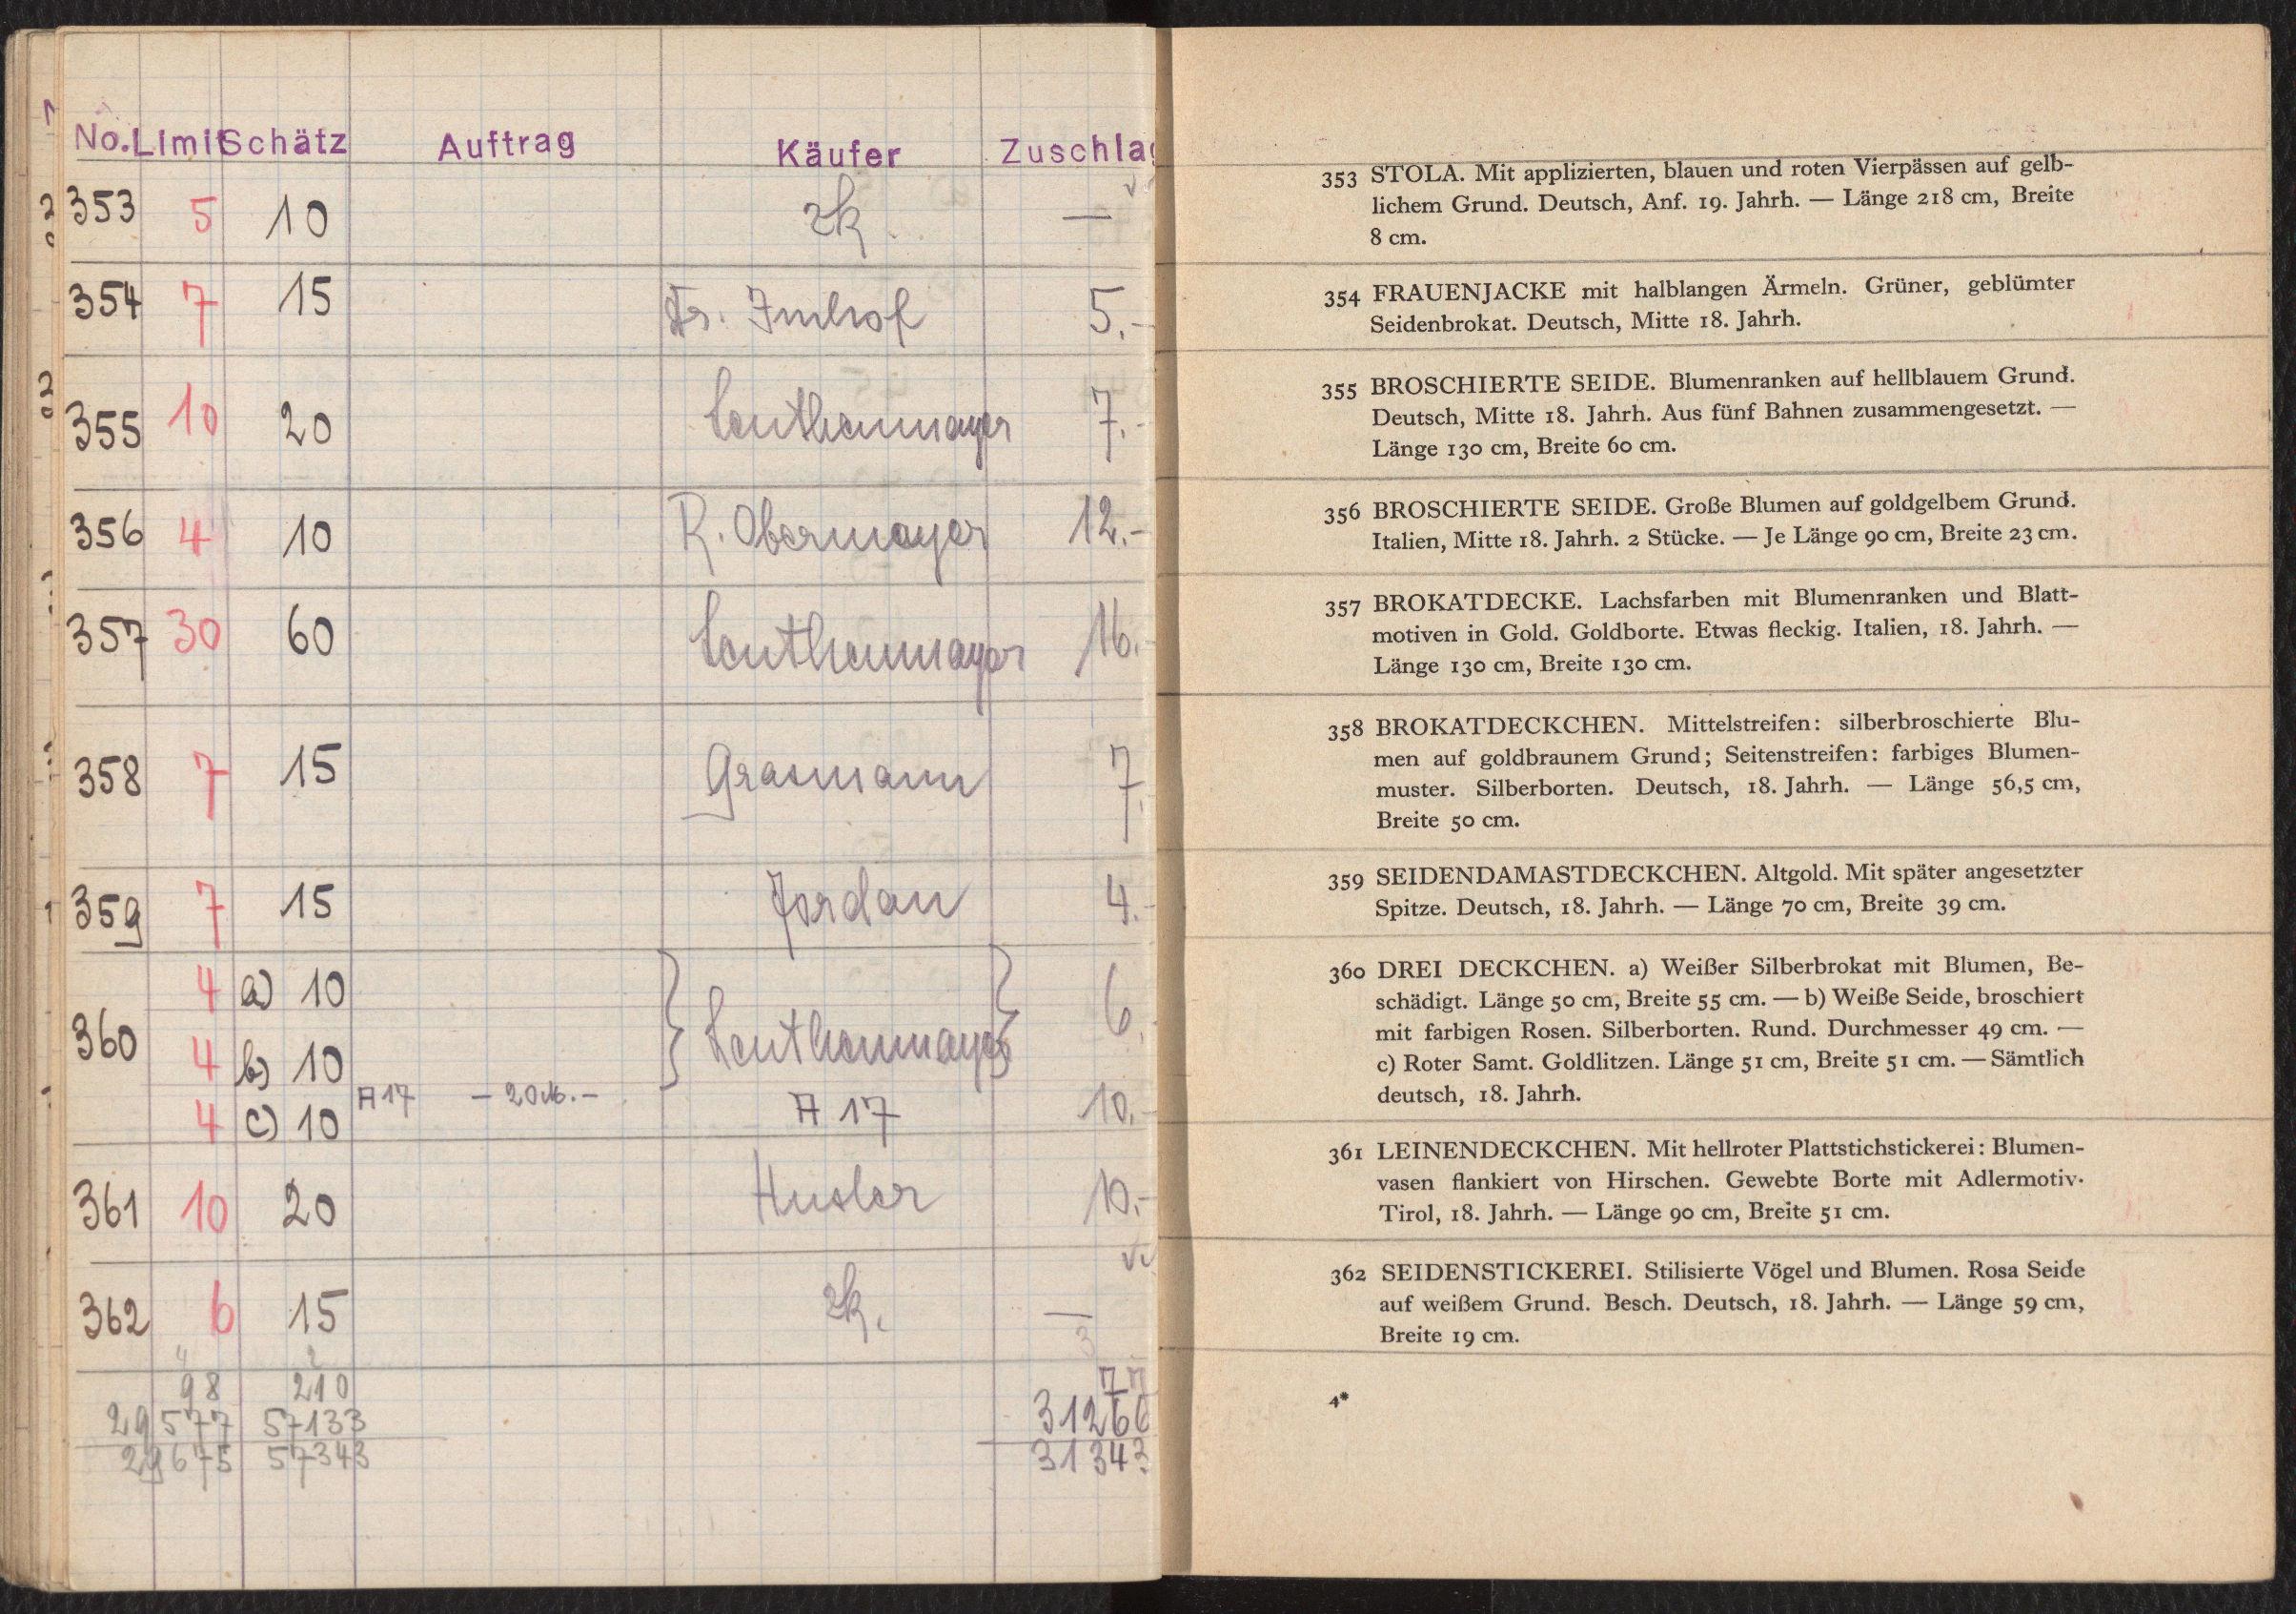 No. Limit Schätz Auftrag Käufer Zuschlag
353 5 10 zk. —
354 7 15 Fr. Imhof 5.-
355 10 20 Leuthenmayer 7.-
356 4 10 R. Obermayer 12.-
357 30 60 Leuthenmayer 16.-
358 7 15 Grasmann 7.
359 7 15 Jordan 4.-
4 a) 10
360 4 b) 10 Leuthenmayer 6.
4 c) 10 A 17 — 20 M. — A 17 10.-
361 10 20 Husler 10.-
362 6 15 zk. —
98 210 77
29577 57133 31266
29675 57343 31343
353 STOLA. Mit applizierten, blauen und roten Vierpässen auf gelb-
lichem Grund. Deutsch, Anf. 19. Jahrh. — Länge 218 cm, Breite
8 cm.
354 FRAUENJACKE mit halblangen Ärmeln. Grüner, geblümter
Seidenbrokat. Deutsch, Mitte 18. Jahrh.
355 BROSCHIERTE SEIDE. Blumenranken auf hellblauem Grund.
Deutsch, Mitte 18. Jahrh. Aus fünf Bahnen zusammengesetzt. —
Länge 130 cm, Breite 60 cm.
356 BROSCHIERTE SEIDE. Große Blumen auf goldgelbem Grund.
Italien, Mitte 18. Jahrh. 2 Stücke. — Je Länge 90 cm, Breite 23 cm.
357 BROKATDECKE. Lachsfarben mit Blumenranken und Blatt-
motiven in Gold. Goldborte. Etwas fleckig. Italien, 18. Jahrh. —
Länge 130 cm, Breite 130 cm.
358 BROKATDECKCHEN. Mittelstreifen: silberbroschierte Blu-
men auf goldbraunem Grund; Seitenstreifen: farbiges Blumen-
muster. Silberborten. Deutsch, 18. Jahrh. — Länge 56,5 cm,
Breite 50 cm.
359 SEIDENDAMASTDECKCHEN. Altgold. Mit später angesetzter
Spitze. Deutsch, 18. Jahrh. — Länge 70 cm, Breite 39 cm.
360 DREI DECKCHEN. a) Weißer Silberbrokat mit Blumen, Be-
schädigt. Länge 50 cm, Breite 55 cm. — b) Weiße Seide, broschiert
mit farbigen Rosen. Silberborten. Rund. Durchmesser 49 cm. —
c) Roter Samt. Goldlitzen. Länge 51 cm, Breite 51 cm. — Sämtlich
deutsch, 18. Jahrh.
361 LEINENDECKCHEN. Mit hellroter Plattstichstickerei: Blumen-
vasen flankiert von Hirschen. Gewebte Borte mit Adlermotiv.
Tirol, 18. Jahrh. — Länge 90 cm, Breite 51 cm.
362 SEIDENSTICKEREI. Stilisierte Vögel und Blumen. Rosa Seide
auf weißem Grund. Besch. Deutsch, 18. Jahrh. — Länge 59 cm,
Breite 19 cm.
4*